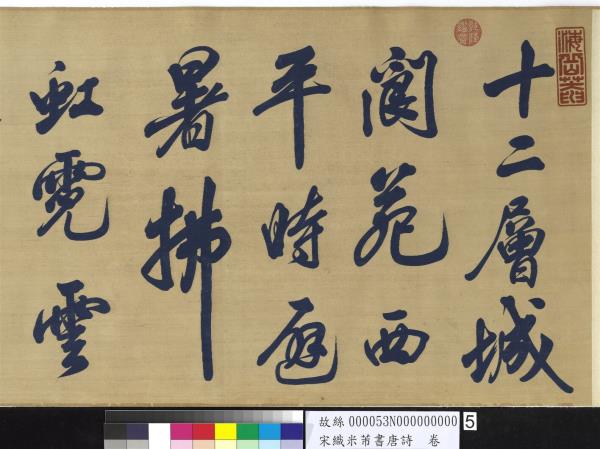 十二層城
閬苑西
平時避
暑拂
虹霓雲
故絲 000053N000000000 5
宋織米芾書唐詩 卷